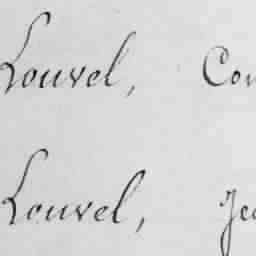 Louvel, Con
Louvel, Jea